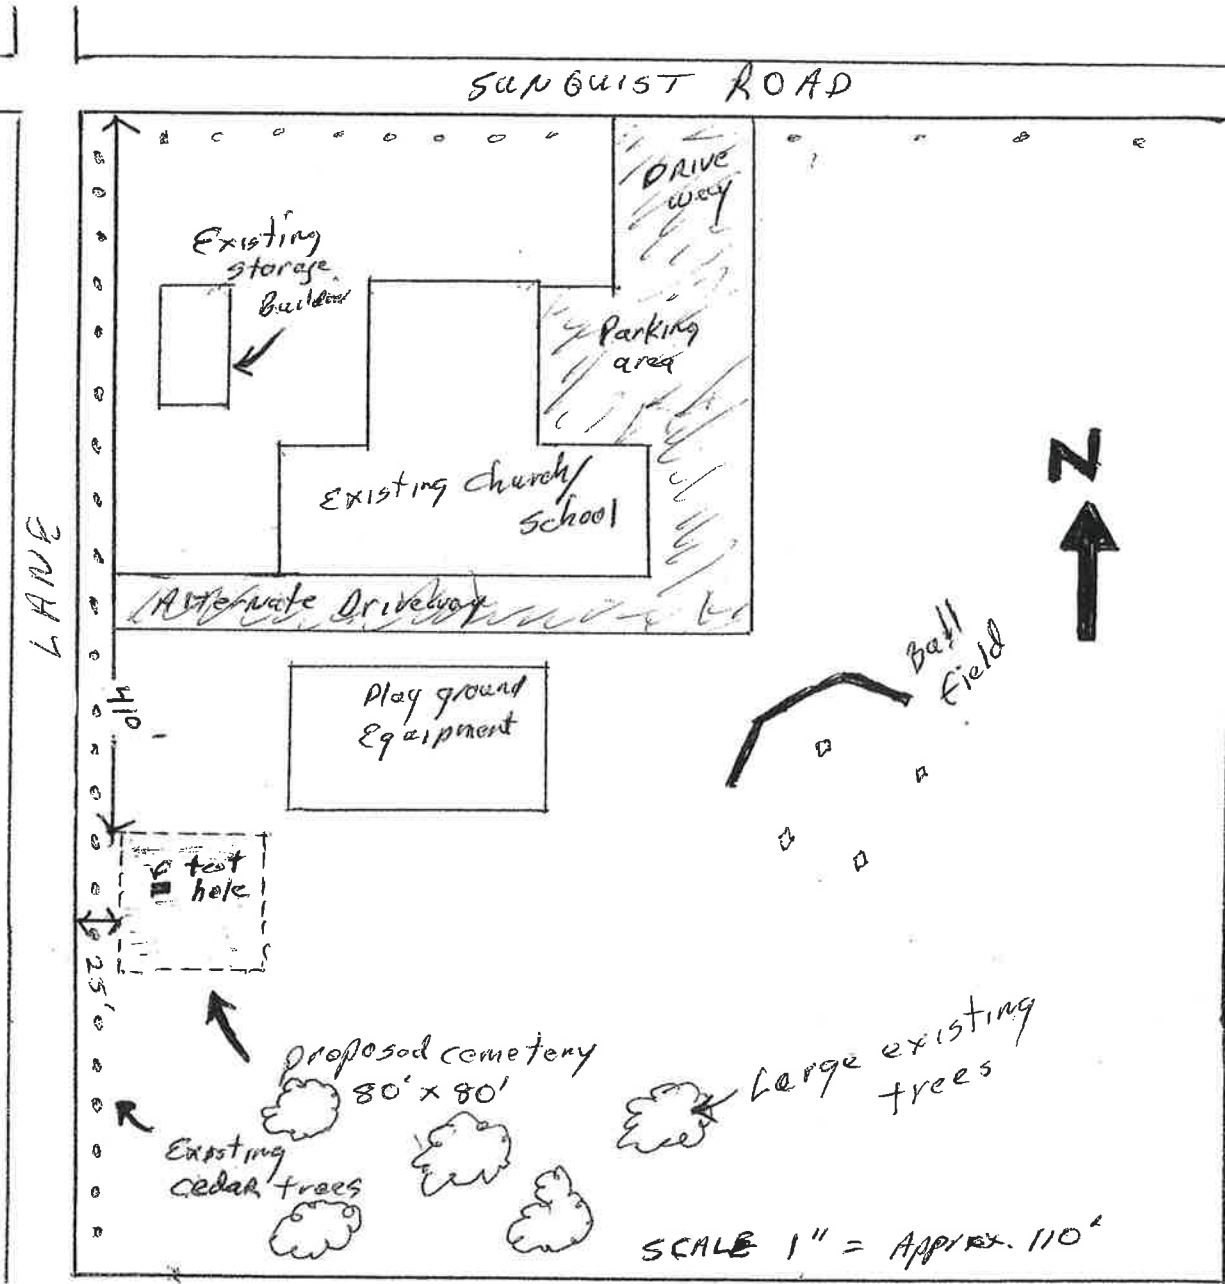 SUNQUIST ROAD
DRIVE
way
Existing
storage
Parking
area
N
Existing Church/
School
LANE
Alternate Driveway
Ball
field
Play ground
Equipment
410
test
hole
25'
proposed cemetery
80' x 80'
Large existing
trees
Existing
cedar trees
SCALE 1" = Approx. 110'